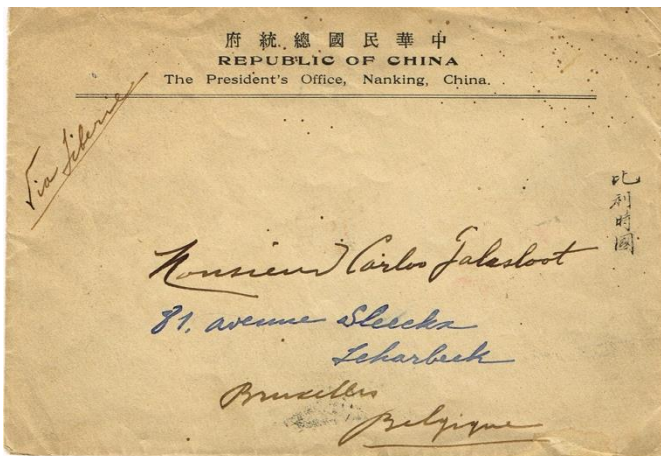 府統總國民華中
REPUBLIC OF CHINA
The President's Office, Nanking, China.
Via Siberie
比利時國
Monsieur Carlos
81, avenue Sleeckx
Scharbeek
Bruxelles
Belgique